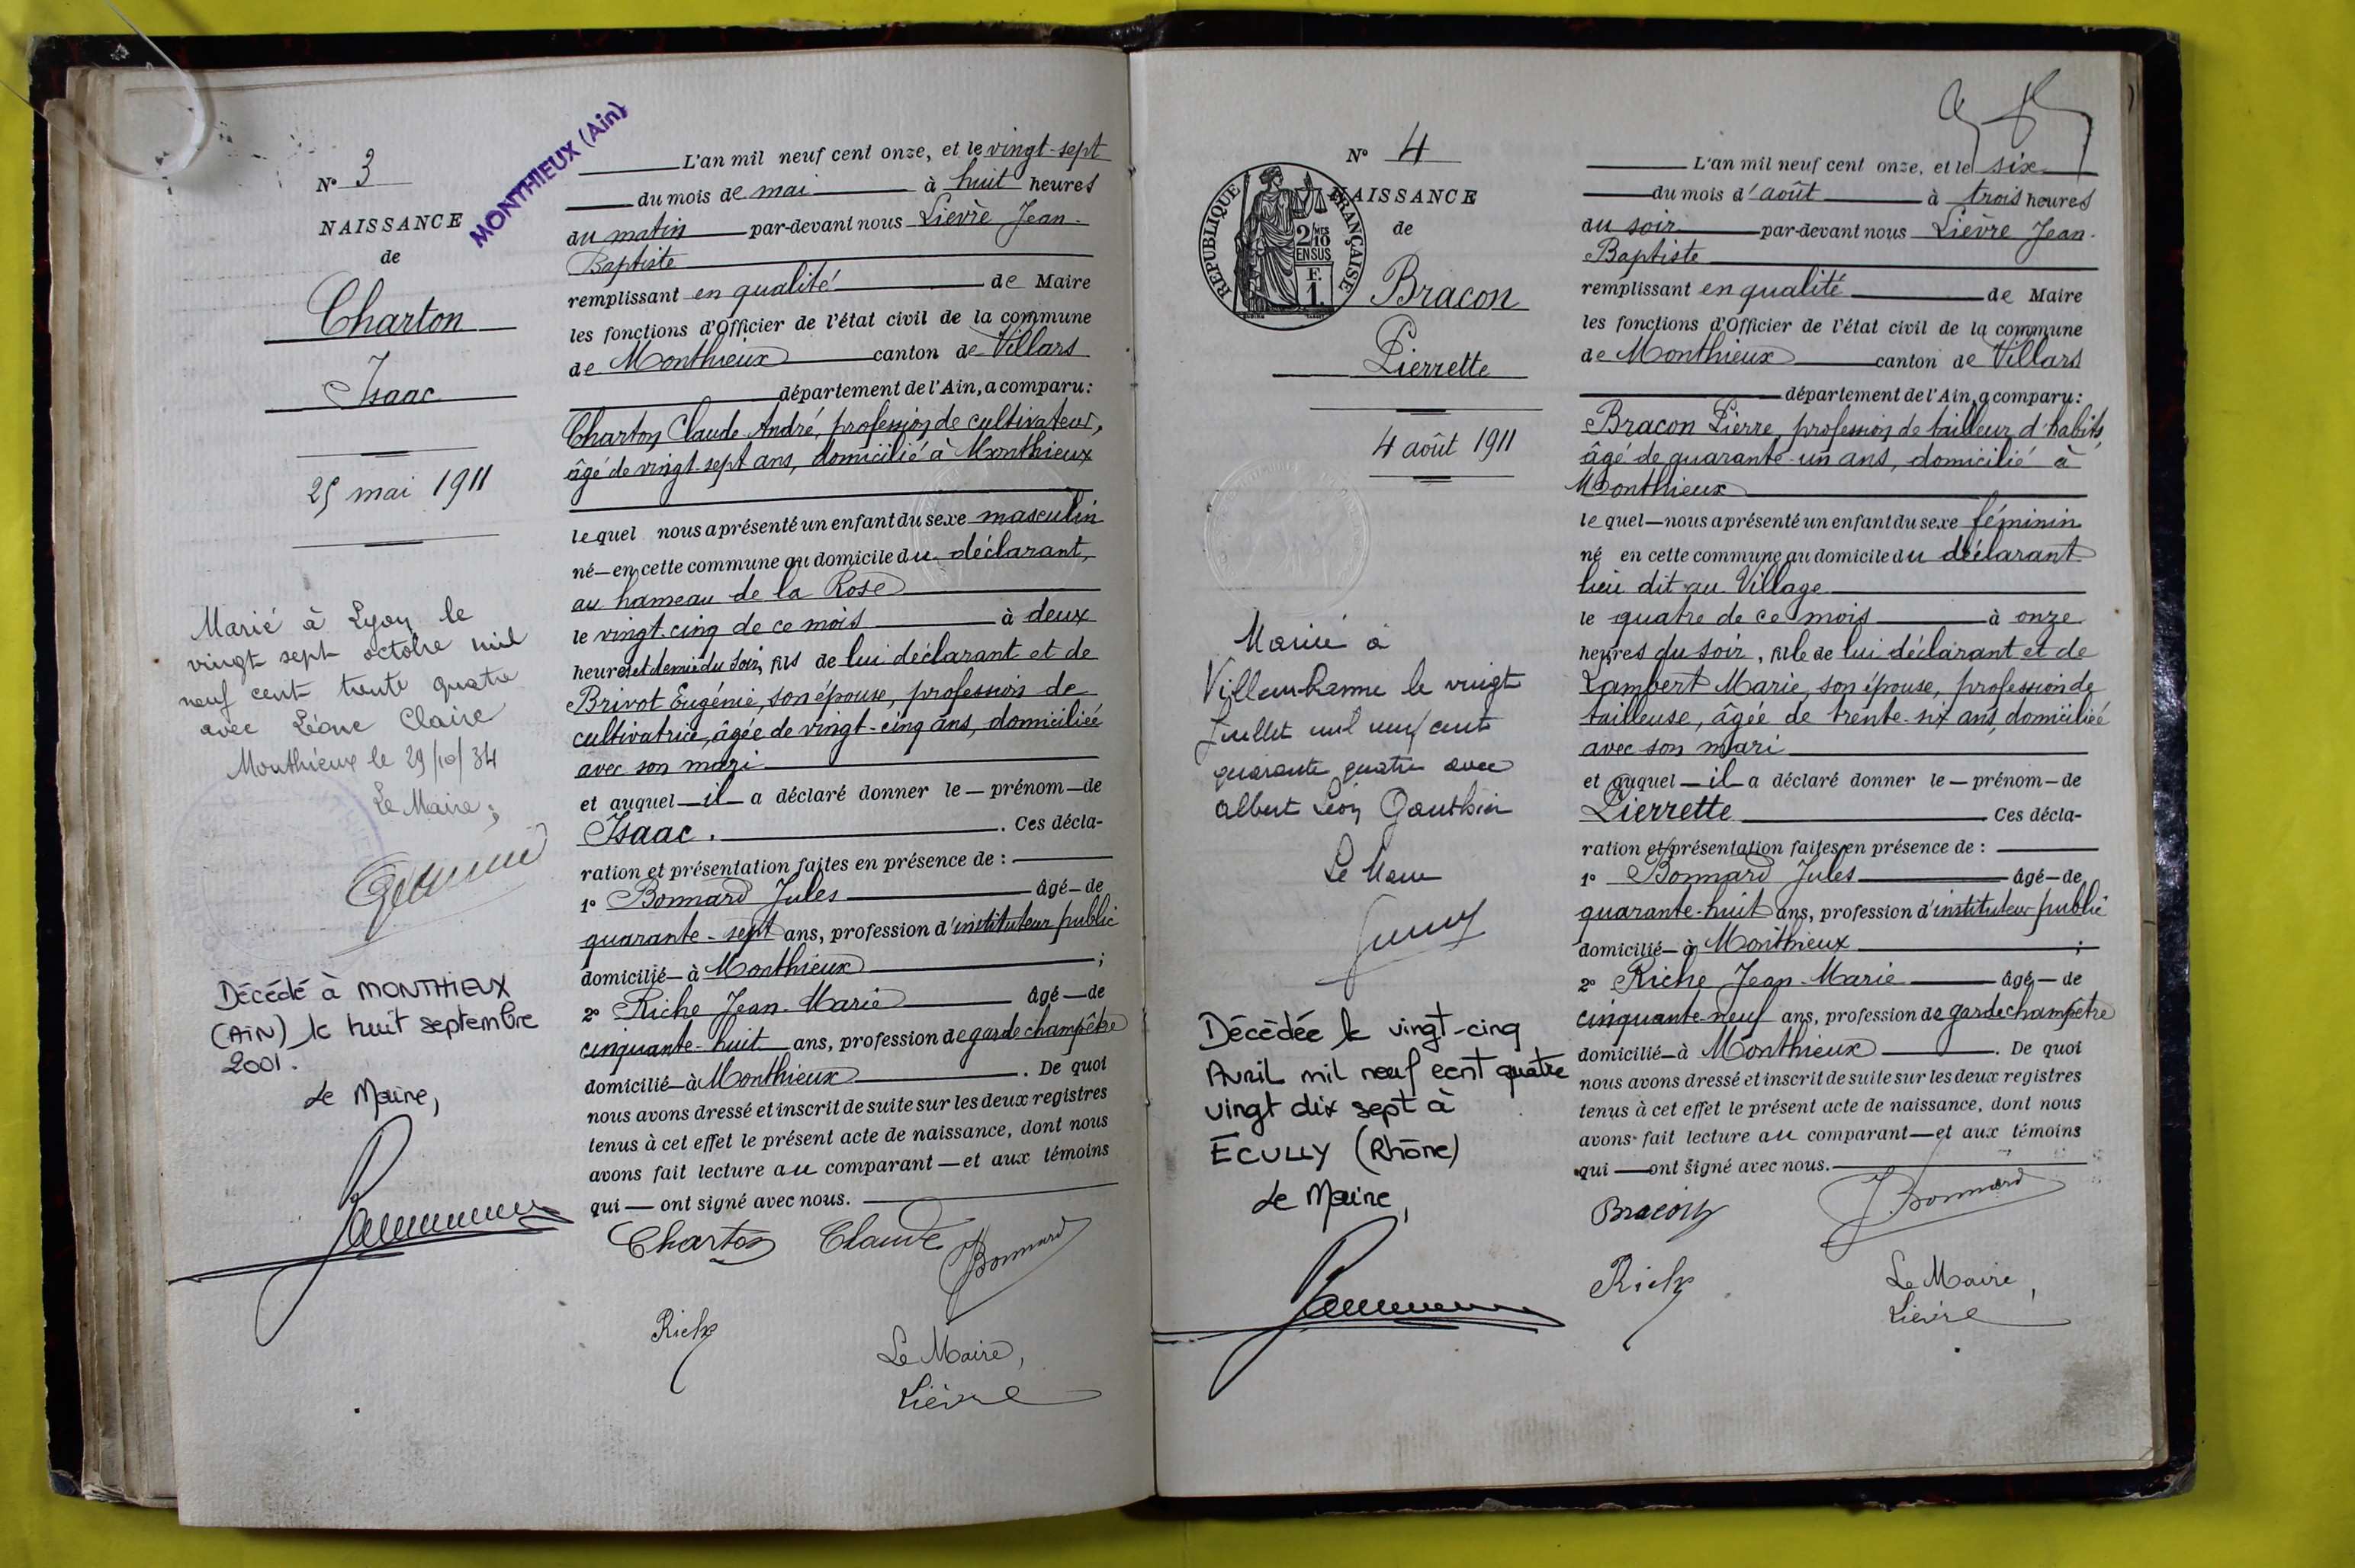 MONTHIEUX (Ain)
N° 3
NAISSANCE
de
Charton
Isaac
25 mai 1911
Marié à Lyon le
vingt sept octobre mil
neuf cent trente quatre
avec Léone Claire
Monthieux le 29/10/34
Le Maire,
Décédé à MONTHIEUX
(AIN) le huit septembre
2001.
Le Maire,
L'an mil neuf cent onze, et le vingt-sept
du mois de mai à huit heures
du matin par-devant nous Lievre Jean-
Baptiste
remplissant en qualité de Maire
les fonctions d'Officier de l'état civil de la commune
de Monthieux canton de Villars
département de l'Ain, a comparu:
Charton Claude André, profession de cultivateur,
âgé de vingt-sept ans, domicilié à Monthieux
lequel nous a présenté un enfant du sexe masculin
né—en cette commune au domicile du déclarant,
au hameau de la Rose
le vingt-cinq de ce mois à deux
heures et demie du soir, fils de lui déclarant et de
Brivot Eugénie, son épouse, profession de
cultivatrice, âgée de vingt-cinq ans, domiciliée
avec son mari
et auquel—il—a déclaré donner le—prénom—de
Isaac. . Ces décla-
ration et présentation faites en présence de :
1° Bonnard Jules âgé—de
quarante-sept ans, profession d'instituteur public
domicilié—à Monthieux ;
2° Riche Jean-Marie âgé—de
cinquante-huit ans, profession de garde champêtre
domicilié—à Monthieux . De quoi
nous avons dressé et inscrit de suite sur les deux registres
tenus à cet effet le présent acte de naissance, dont nous
avons fait lecture au comparant—et aux témoins
qui—ont signé avec nous.
Charton Claude JBonnard
Riche
Le Maire,
Lièvre
N° 4
NAISSANCE
de
REPUBLIQUE FRANÇAISE
2/10 MES
EN SUS
F.
1.
Bracon
Pierrette
4 août 1911
Marié à
Villeurbanne le vingt
Juillet mil neuf cent
quarante quatre avec
Albert Léon Gauthier
Le Maire
Décédée le vingt-cinq
Avril mil neuf cent quatre
vingt dix sept à
ECULLY (Rhône)
Le Maire,
L'an mil neuf cent onze, et le six
du mois d'août à trois heures
du soir par-devant nous Lièvre Jean-
Baptiste
remplissant en qualité de Maire
les fonctions d'Officier de l'état civil de la commune
de Monthieux canton de Villars
département de l'Ain, a comparu:
Bracon Pierre, profession de tailleur d'habits,
âgé de quarante-un ans, domicilié à
Monthieux
lequel—nous a présenté un enfant du sexe féminin
né en cette commune au domicile du déclarant
lieu dit au Village
le quatre de ce mois à onze
heures du soir, fille de lui déclarant et de
Lambert Marie, son épouse, profession de
tailleuse, âgée de trente-six ans, domiciliée
avec son mari
et auquel—il—a déclaré donner le—prénom—de
Pierrette . Ces décla-
ration et présentation faites en présence de :
1° Bonnard Jules âgé—de
quarante-huit ans, profession d'instituteur public
domicilié—à Monthieux ;
2° Riche Jean-Marie âgé—de
cinquante-neuf ans, profession de garde champêtre
domicilié—à Monthieux . De quoi
nous avons dressé et inscrit de suite sur les deux registres
tenus à cet effet le présent acte de naissance, dont nous
avons fait lecture au comparant—et aux témoins
qui—ont signé avec nous.
Bracon J. Bonnard
Riche
Le Maire,
Lièvre